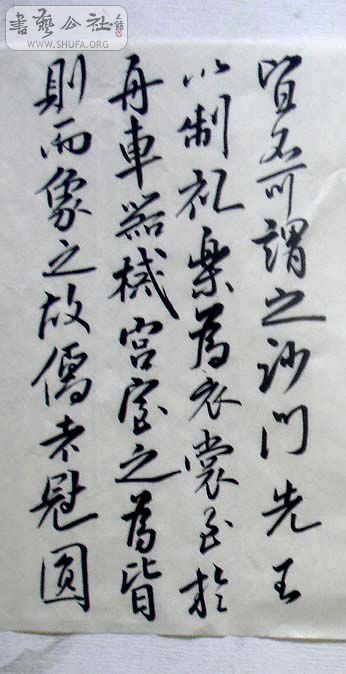 書藝公社
WWW.SHUFA.ORG
皆不可謂之沙門先王
以制礼樂為衣裳至於
舟車器械宮室之為皆
則而象之故儒者冠圓